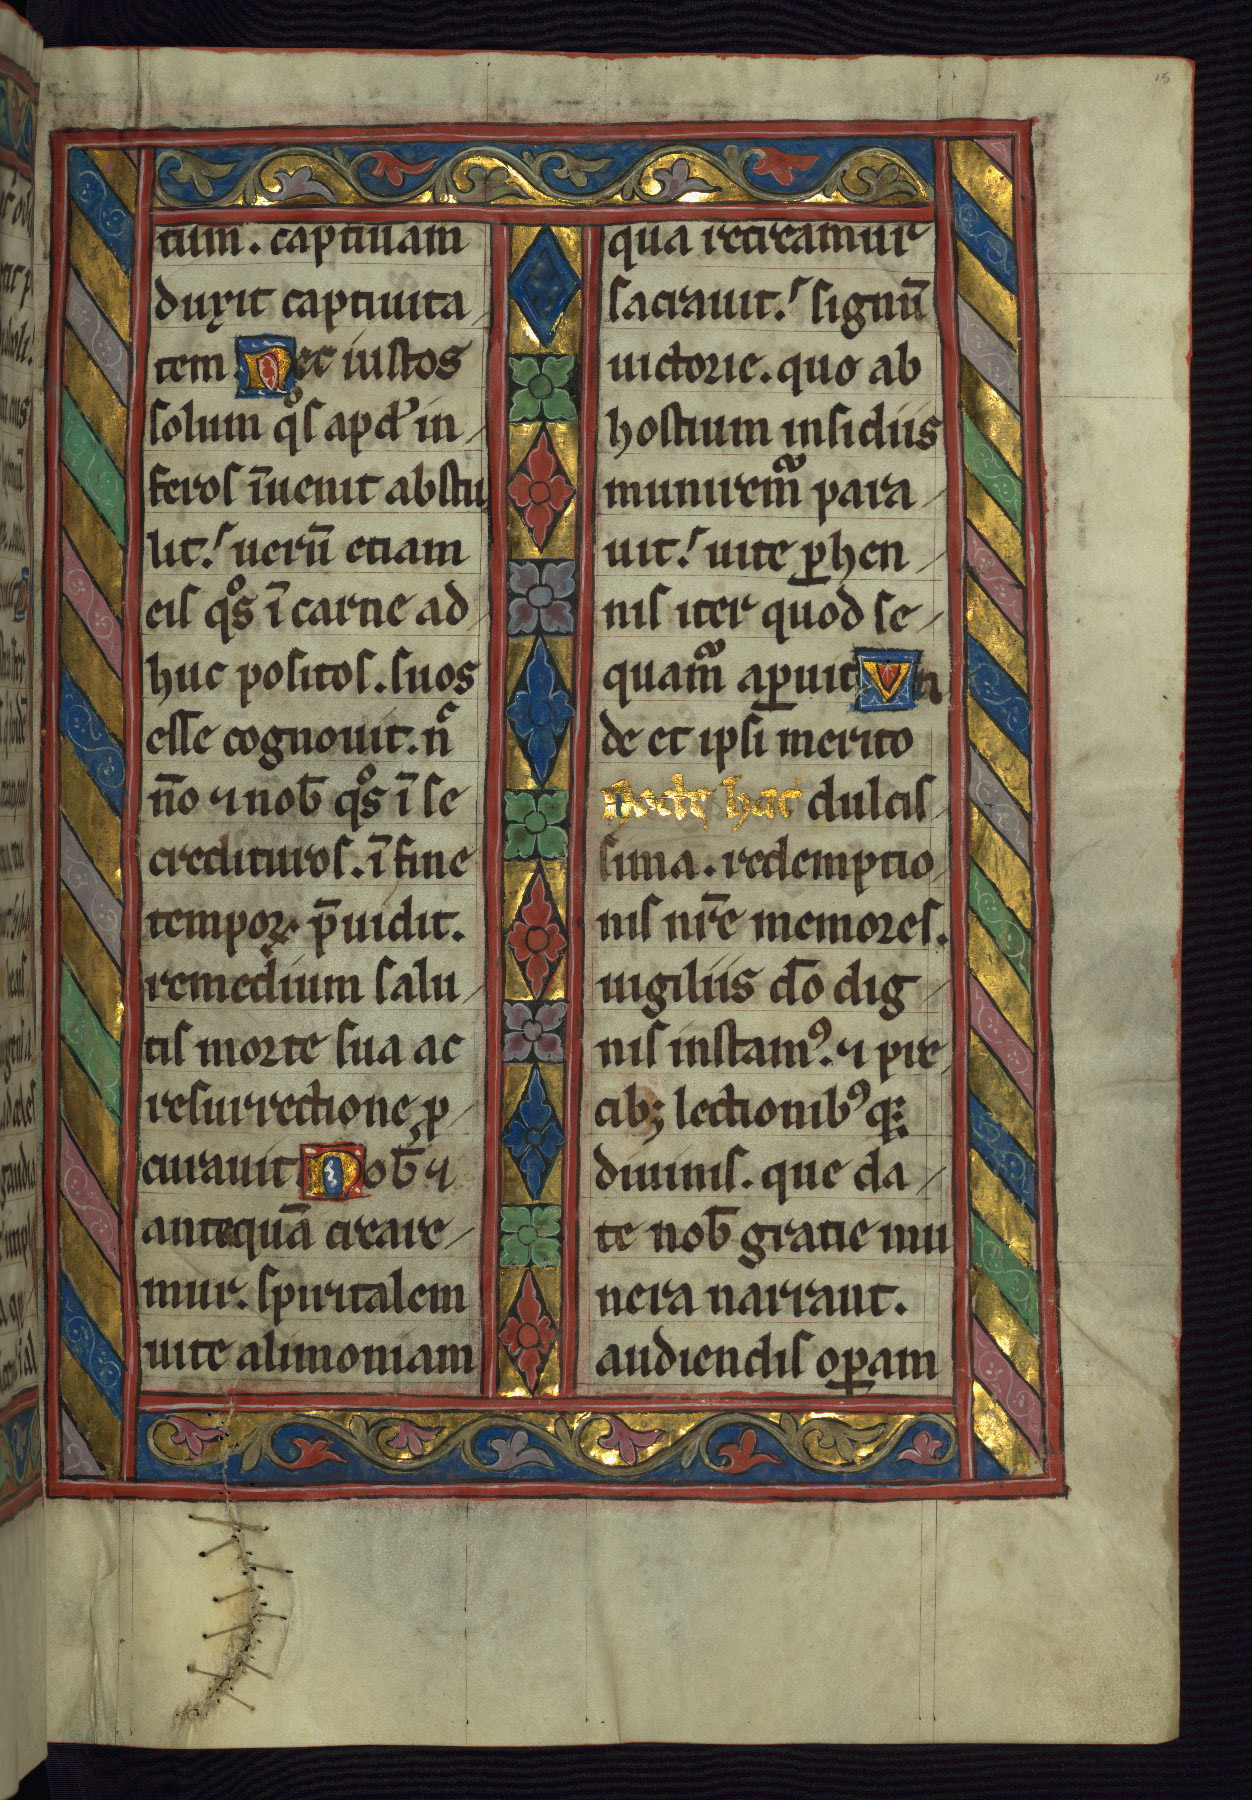 15
tum. captiuam
duxit captiuita
tem. Nec iustos
solum q̊s apd' in
feros ī̄uenit abstu
lit. uerū etiam
eis q̊s ī carne ad
huc positos. suos
esse cognouit. n̄c
n̄o ⁊ nob̄ q̊s ī se
credituros. ī fine
tempoꝝ. p̄uidit.
remedium salu
tis morte sua ac
resurrectione, p
curauit. Nob̄ ⁊
antequā creare
mur. spiritalem
uite alimoniam
qua recreamur
sacrauit. signū
uictorie. quo ab
hostium insidiis
muniremᷓ para
uit. uite ꝑhen
nis iter quod se
quamᷓ aꝑuit Vn
de et ipsi merito
Nocte hac dulcis
sima. redemptio
nis nr̄e memores.
uigiliis do̅ dig
nis instamꝰ. ⁊ pre
cib; lectionibꝰ q;
diuinis. que da
te nob̄ gratie mu
nera narrant.
audiendis oꝑam